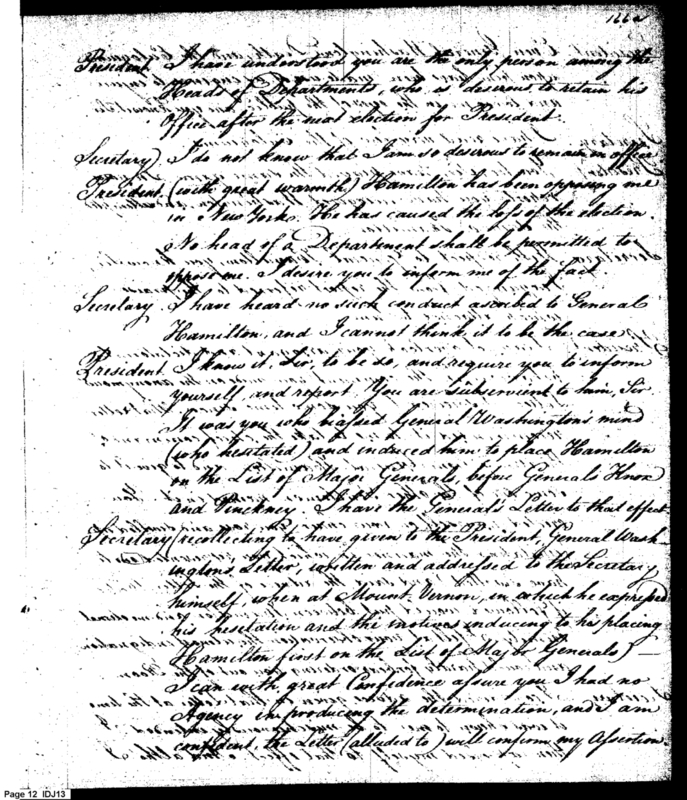 166a
President I have understood you are the only person among the
Heads of Departments, who is desirous to retain his
Office after the next election for President.
Secretary) I do not know that I am so desirous to remain in office
President (with great warmth) Hamilton has been opposing me
in New York. He has caused the loss of the election.
No head of a Department shall be permitted to
oppose me. I desire you to inform me of the fact.
Secretary. I have heard no such conduct ascribed to General
Hamilton, and I cannot think it to be the case.
President I know it, Sir, to be so, and require you to inform
yourself, and report. You are subservient to him, Sir.
It was you who biassed General Washington's mind
(who hesitated) and induced him to place Hamilton
on the List of Major Generals, before Generals Knox
and Pinckney. I have the General's Letter to that effect
Secretary (recollecting to have given to the President, General Wash-
ington's Letter, written and addressed to the Secretary
himself, when at Mount Vernon, in which he expressed
his hesitation and the motives inducing to his placing
Hamilton first on the List of Major Generals) —
I can with great Confidence assure you I had no
Agency in producing the determination, and I am
confident, the Letter (alluded to) will confirm my Assertion.
Page 12 IDJ13